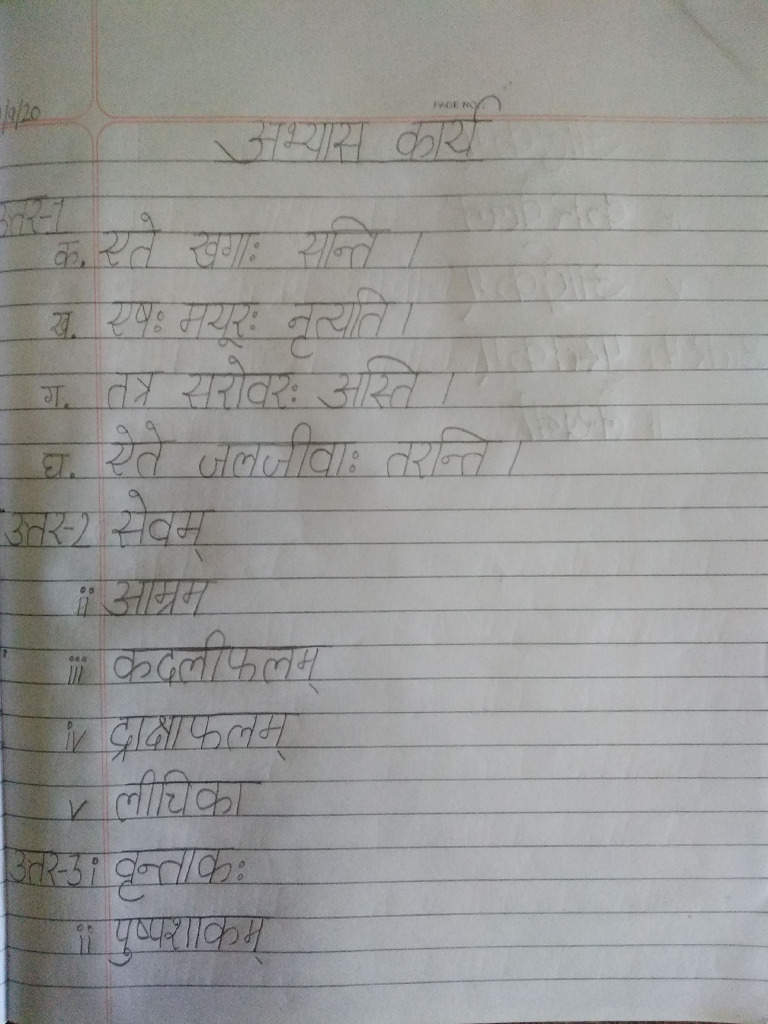 /9/20
PAGE NO.:
अभ्यास कार्य
उतर-1
क. एते खगाः सन्ति ।
ख. एषः मयूरः नृत्यति ।
ग. तत्र सरोवरः अस्ति ।
घ. ऐते जलजीवाः तरन्ति ।
उतर-2 सेवम्
ii आम्रम
iii कदलीफलम्
iv द्राक्षाफलम्
v लीचिका
उतर-3 i वृन्ताकः
ii पुष्पशाकम्